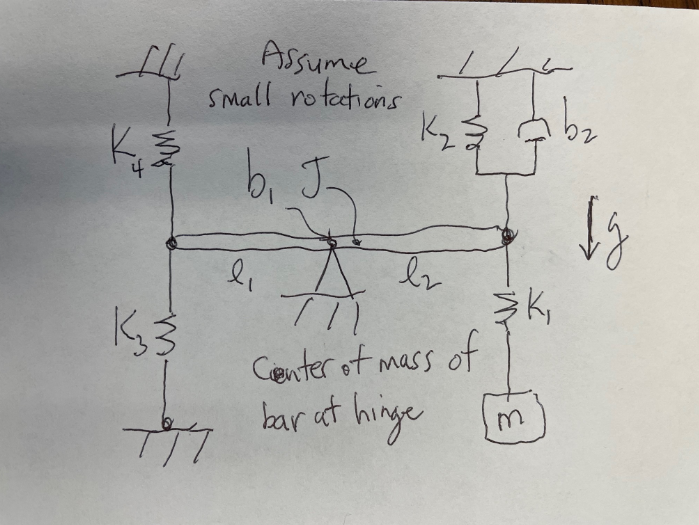 Assume
small rotations
K4
K2
b2
b1
J
g
l1
l2
K3
K1
Center of mass of
bar at hinge
m